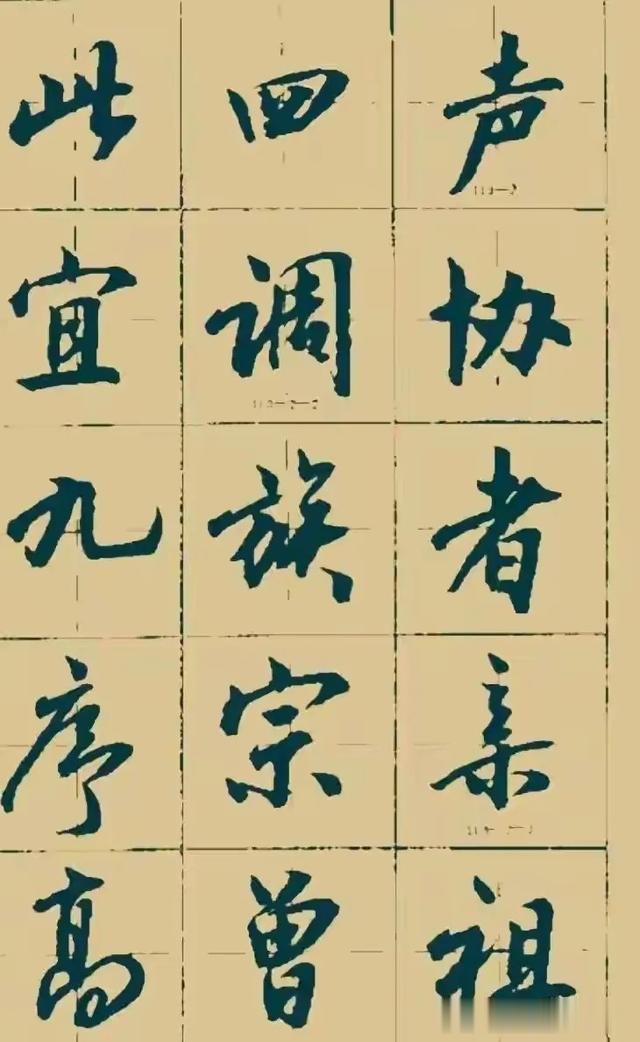 此四声
宜调协
九族者
序宗亲
高曾祖